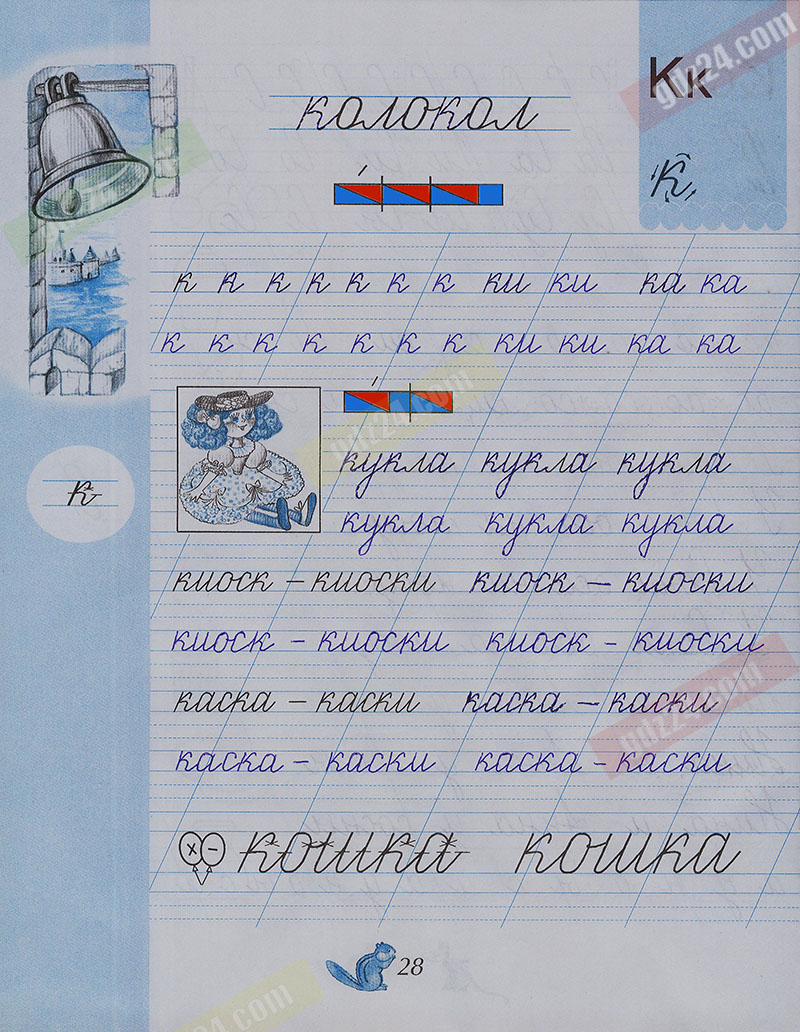 Кк
колокол
К
к к к к к к к ки ки ка ка
к к к к к к к ки ки ка ка
кукла кукла кукла
к
кукла кукла кукла
киоск – киоски киоск – киоски
киоск – киоски киоск – киоски
каска – каски каска – каски
каска – каски каска – каски
× – кошка кошка
28
gdz24.com
gdz24.com
gdz24.com
gdz24.com